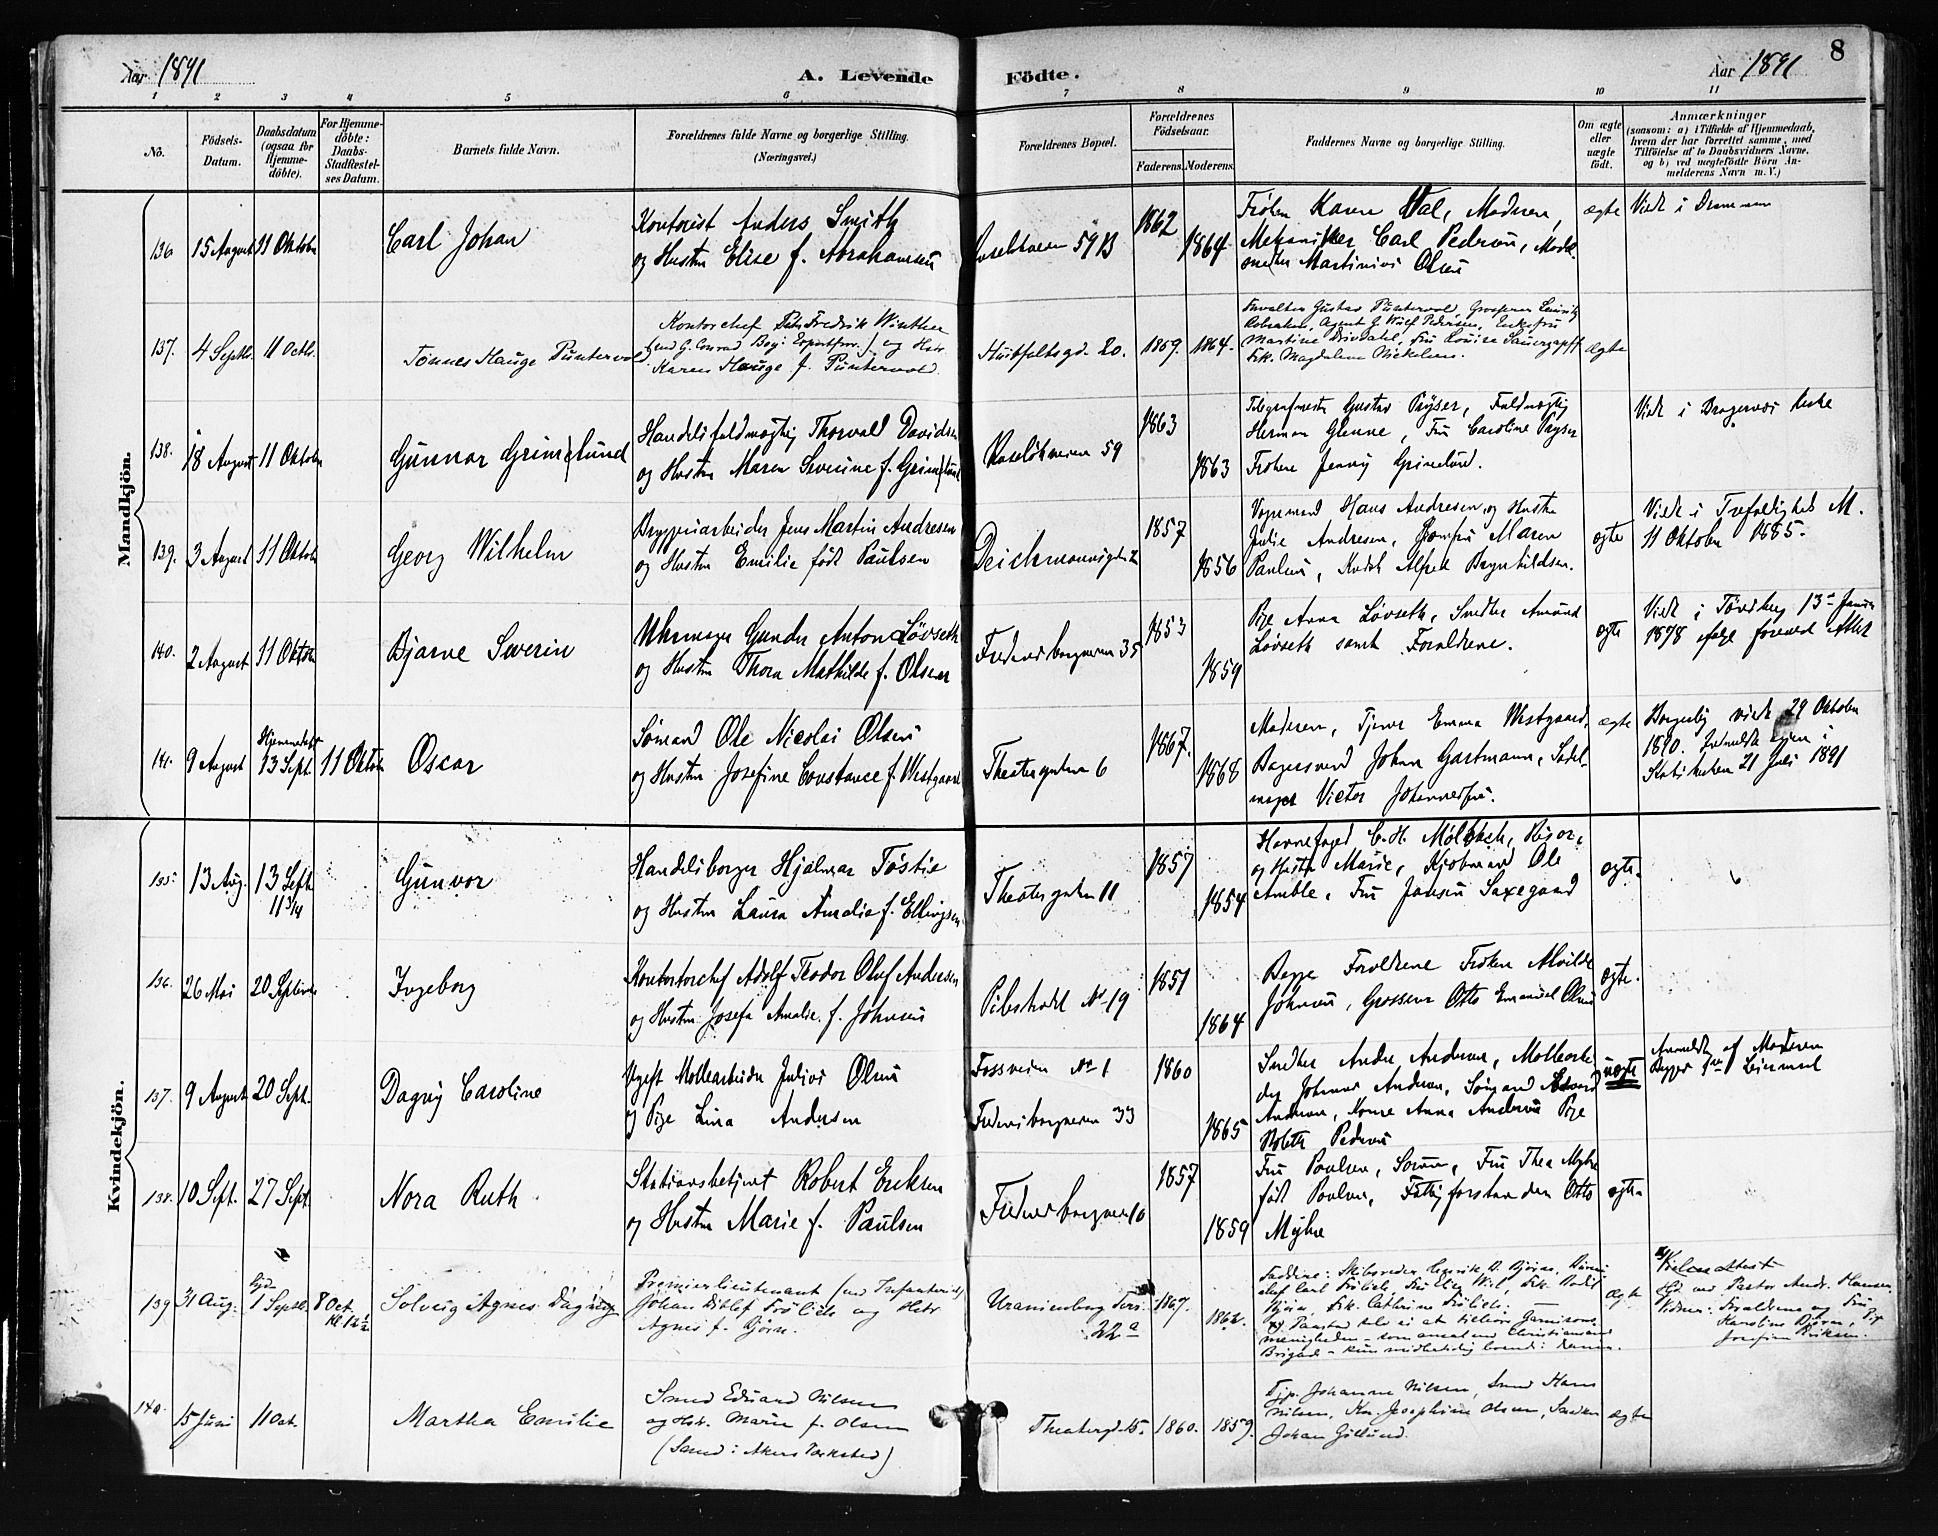 Aar 1891
A. Levende Födte.
Aar 1891
8
1 2 3 4 5 6 7 8 9 10 11
No.
Födsels-Datum.
Daabsdatum (ogsaa for Hjemme-döbte).
For Hjemme-döbte: Daabs-Stadfæstel-ses Datum.
Barnets fulde Navn.
Forældrenes fulde Navne og borgerlige Stilling.
(Næringsvei.)
Forældrenes Bopæl.
Forældrenes Födselsaar.
Faderens. Moderens.
Faddernes Navne og borgerlige Stilling.
Om ægte eller uægte födt.
Anmærkninger
(saasom: a) i Tilfælde af Hjemmedaab,
hvem der har forrettet samme, med
Tilföielse af to Daabsvidners Navne,
og b) ved uegtefödte Börn An-
melderens Navn m. V.)
Mandkjön.
136 15 August 11 Oktober Carl Johan
Kontorist Anders Smith
og Hustru Elise f. Abrahamsen
59 B 1862 1864
Frøken Karen Dal, Moderen,
Mekaniker Carl Pedersen,
Olsen
ægte
Viede i Drammen
137. 4 Septb. 11 Octb. Tönnes Hauge Puntervold
Kontorchef Fredrik Winther
og Hstr.
Karen Hauge f. Puntervold.
Huitfeltsgd. 20. 1859. 1864.
Gustav Puntervold, Grosserer
Agent G. Wulf Pedersen,
Martine Frk. Magdalena
ægte
138. 18 August 11 Oktober Gunnar Grimelund
Handelsfuldmægtig Thorvald Davidsen
og Hustru Maren Severine f. Grimelund
Ruseløkveien 59 1863 1863
Telegrafmester Gustav Pryser, Fuldmægtig
Herman Glenne, Fru Caroline Pryser
Frøken Jenny Grimelund.
Viede i Bragernes Kirke
139. 3 August 11 Oktober Georg Wilhelm
Bryggeriarbeider Jens Martin Andresen
og Hustru Emilie født Paulsen
1857 1856
Vognmand Hans Andresen og Hustru
Julie Andresen, Jomfru Maren
Paulsen, Kudsk Alfred Brynhildsen.
ægte
Viede i Trefoldighed M.
11 Oktober 1885.
140. 2 August 11 Oktober Bjarne Severin
Uhrmager Gunder Anton Løvseth
og Hustru Thora Mathilde f. Olsen
Frederiksborgveien 35 1853 1859
Pige Anna Løvseth, Snedker Amund
Løvseth samt Forældrene.
ægte
Viede i Tönsberg 13de Januar
1878 ifølge forevist Attest
141. 9 August Hjemmedøbt 13 Sept. 11 Oktober Oscar
Sömand Ole Nicolai Olsen
og Hustru Josefine Constance f. Westgaard
Theatergaden 6 1867. 1868
Moderen, Tjener Emma Westgaard,
Bagersvend Johan Gartmann, Sadel-
mager Victor Johannesen.
ægte
Borgerlig viede 29 Oktober
1890.
21 Juli 1891
Kvindekjön.
135 13 Aug. 13 Sept. 11 3/4 Gunvor
Handelsborger Hjalmar Tostie
og Hustru Laura Amalie f. Ellingsen
Theatergaden 11 1857 1854
Havnefoged C. H. Mølbach, Risør,
og Hustru Marie, Kjøbmand Ole
Amble, Fru Jansen Saxegaard
ægte.
136. 26 Mai 20 September Ingeborg
Kontorchef Adolf Teodor Oluf Andersen
og Hustru Josefa Amalie f. Johnsen
Pilestrædet No 19 1851 1864
Begge Forældrene Frøken Alvilde
Johnsen, Grosserer Otto Emanuel Olsen
ægte.
137. 9 August 20 Sept. Dagny Caroline
Ugift Møllearbeider Julius Olsen
og Pige Lina Andersen
Fossveien No 1
Frederiksborgveien 33
1860 1865
Snedker Andr. Andersen, Møllearbei-
der Johannes Andersen, Sömand Edvard
Andersen, Kone Anna Andersen Pige
Bolette Pedersen
uægte
Anmeldt af Moderen
138. 10 Sept. 27 Sept. Nora Ruth
Stationsbetjent Robert Eriksen
og Hustru Marie f. Paulsen
Frederiksborgveien 10 1857 1859
Fru Poulsen, Fru Thea Myhre
født Poulsen, Fattigforstander Otto
Myhre
ægte
139 31 Aug. 1 Septb. 8 Oct. Kl. 12½ Solveig Agnes Dagny
Premierlieutenant (ved Infanteriet)
Johan Ditlef Frölich og Hstr.
Agnes f. Björn.
Uranienborg Terr. 22a 1867. 1862.
Faddere: Skibsreder Henrik D. Björn,
Carl Frölich, Fru Elise Wiel, Frk. Bodil
Björn, Frk. Cathrine Frölich.
Garnisons-
menigheden – som ansat ved Christiansand
Brigade – kun midlertidig boende i
ægte
Vielsesattest
Hjd. ved Pastor Andr. Hansen
Vidner: Forældrene og Fru
Karoline Björn, Pige
Josefine Eriksen.
140. 15 Juni 11 Oct. Martha Emilie
Smed Edvard Nilsen
og Hstr. Marie f. Olsen
(Smed i Akers Værksted)
Theatergd. 15. 1860. 1859.
Tjp. Johanne Nilsen, Smed Hans
Nilsen, Kone Josephine Olsen, Snedker
Johan Gillund.
ægte